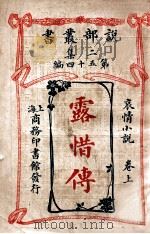 說部叢書
二集
第五十四編
哀情小說 卷上
露惜傳
上海商務印書館發行